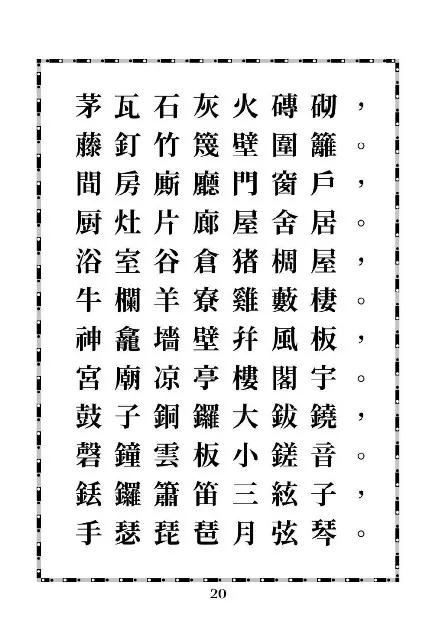 茅瓦石灰火磚砌，
藤釘竹篾壁圍籬。
間房廁廳門窗戶，
厨灶片廊屋舍居。
浴室谷倉猪椆屋，
牛欄羊寮雞藪棲。
神龕墻壁幷風板，
宮廟凉亭樓閣宇。
鼓子銅鑼大鈸鐃，
磬鐘雲板小鎈音。
鋕鑼簫笛三絃子，
手瑟琵琶月弦琴。
20